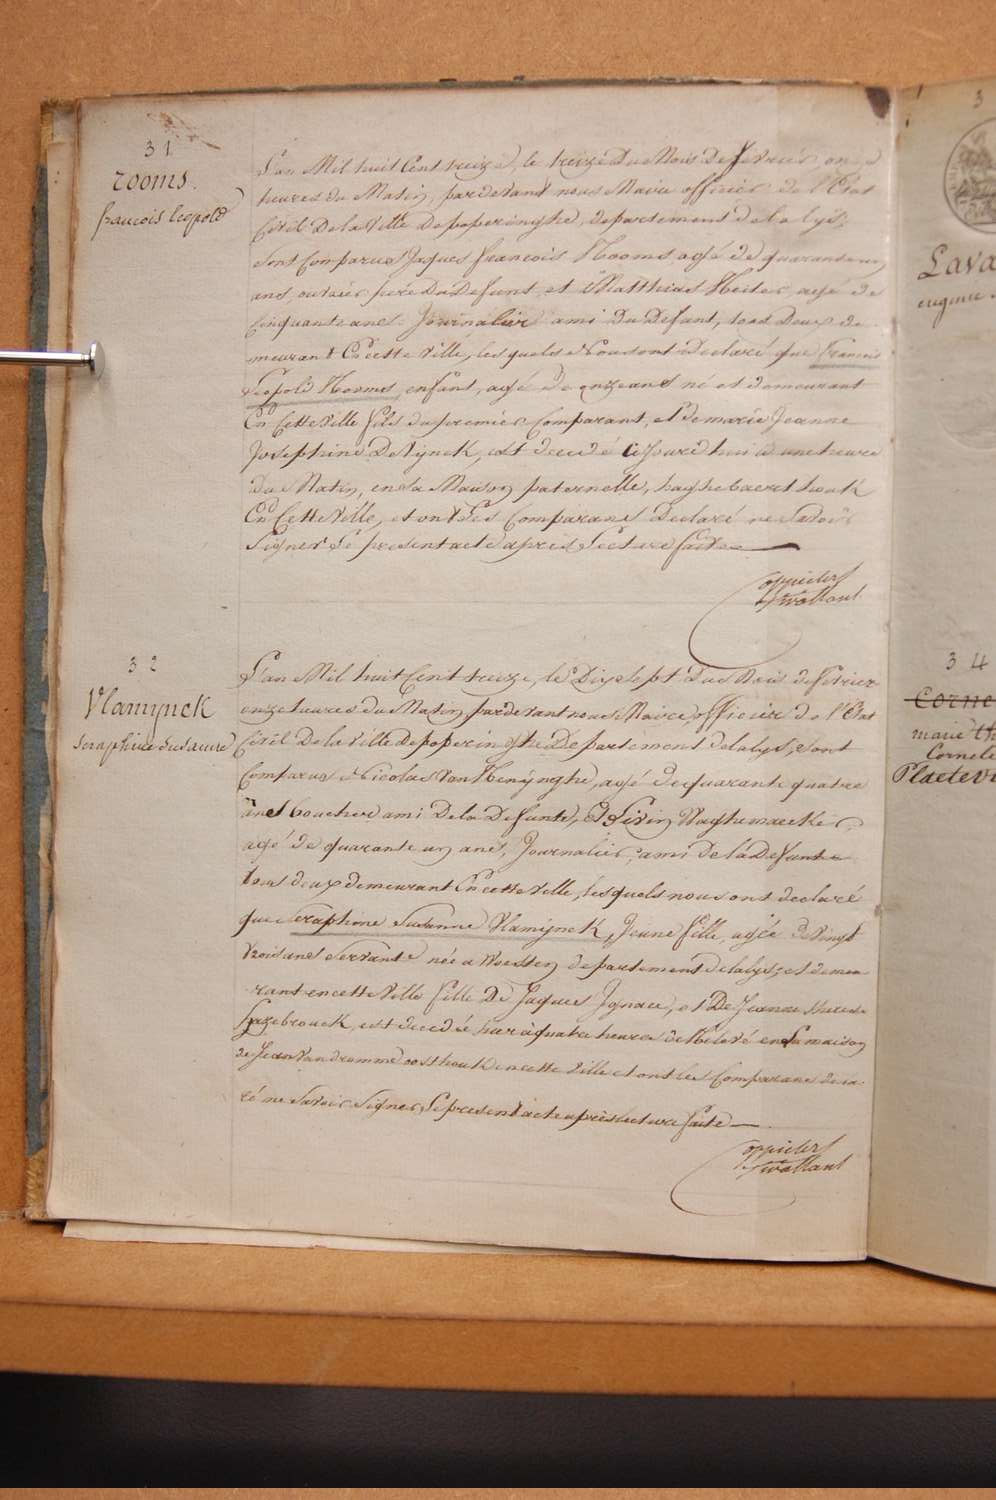 31
rooms.
francois leopold
L'an Mil huit Cent treize, le treize Du Mois De fevrier onze
heures du Matin, pardevant nous Maire officier de l'Etat
Civil De la Ville De poperinghe, departement de la lys,
sont Comparus Jaques francois Rooms agé de quarante un
ans, ouvrier pere Du Defunt, et Matthias agé de
Cinquante ans Journalier ami Du Defunt, tous Deux de-
meurant En cette Ville, les quels Nous ont Declaré que francois
Leopold Rooms, enfant, agé De onze ans né et demeurant
En Cette Ville fils du premier Comparant, et De marie Jeanne
Josephine est decedé cejourd'hui à une heure
Du Matin, en sa Maison paternelle, haghebaert houk
En Cette Ville, et ont Les Comparans Declaré ne Savoir
Signer Le present acte après Lecture faite
32
Vlamijnck
seraphine Susanne
L'an Mil huit Cent treize, le Dix Sept Du Mois de fevrier
onze heures du Matin pardevant nous Maire officier de l'Etat
Civil De la Ville De poperinghe Departement de la lys, sont
Comparus Nicolas Van Renynghe, agé de quarante quatre
ans boucher ami De la Defunte, Et Livin Naghemaecker
agé de quarante un ans, Journalier, ami de la Defunte
tous deux demeurant En cette Ville, lesquels nous ont declaré
que Seraphine Susanne Vlamijnck, Jeune fille, agée De Vingt
trois ans Servante née a Woesten departement de la lys, et demeu-
rant en cette Ville fille De Jaques Ignace, et De Jeanne therese
hazebrouck, est decedée hier à quatre heures de Relevé en la maison
de Jean Vandromme oosthouk en cette Ville et ont les Comparans decla-
ré ne Savoir Signer, Le present acte après lecture faite
3
Lava
eugenie
34
Corne
marie th
Corneli
Plaetev